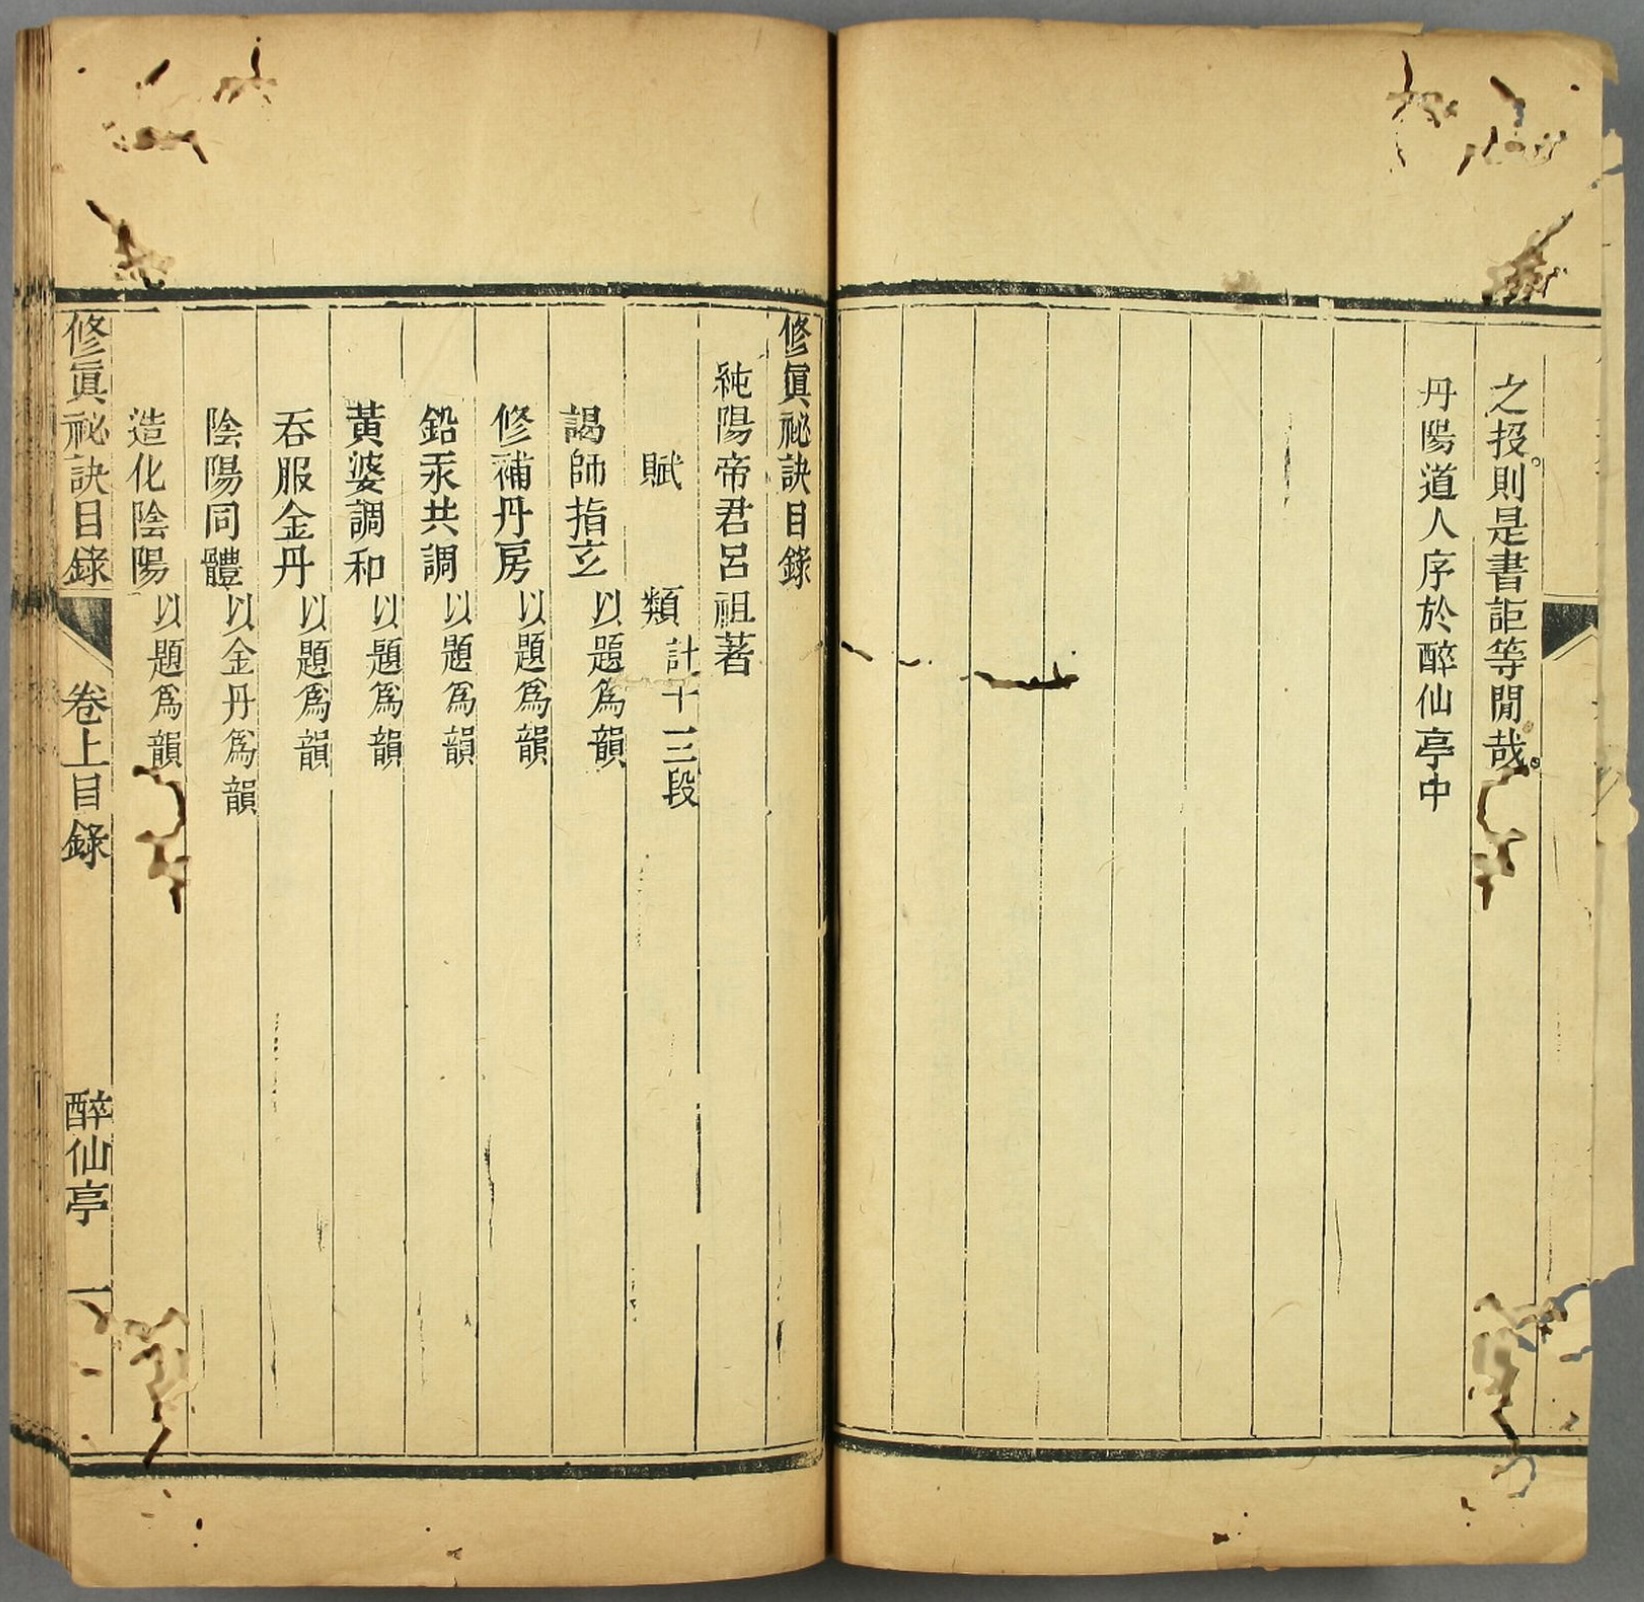 之投。則是書詎等閒哉。
丹陽道人序於醉仙亭中
修眞祕訣目錄
純陽帝君呂祖著
賦類計十三段
謁師指玄以題爲韻
修補丹房以題爲韻
鉛汞共調以題爲韻
黃婆調和以題爲韻
吞服金丹以題爲韻
陰陽同體以金丹爲韻
造化陰陽以題爲韻
修眞祕訣目錄 卷上目錄 醉仙亭 一